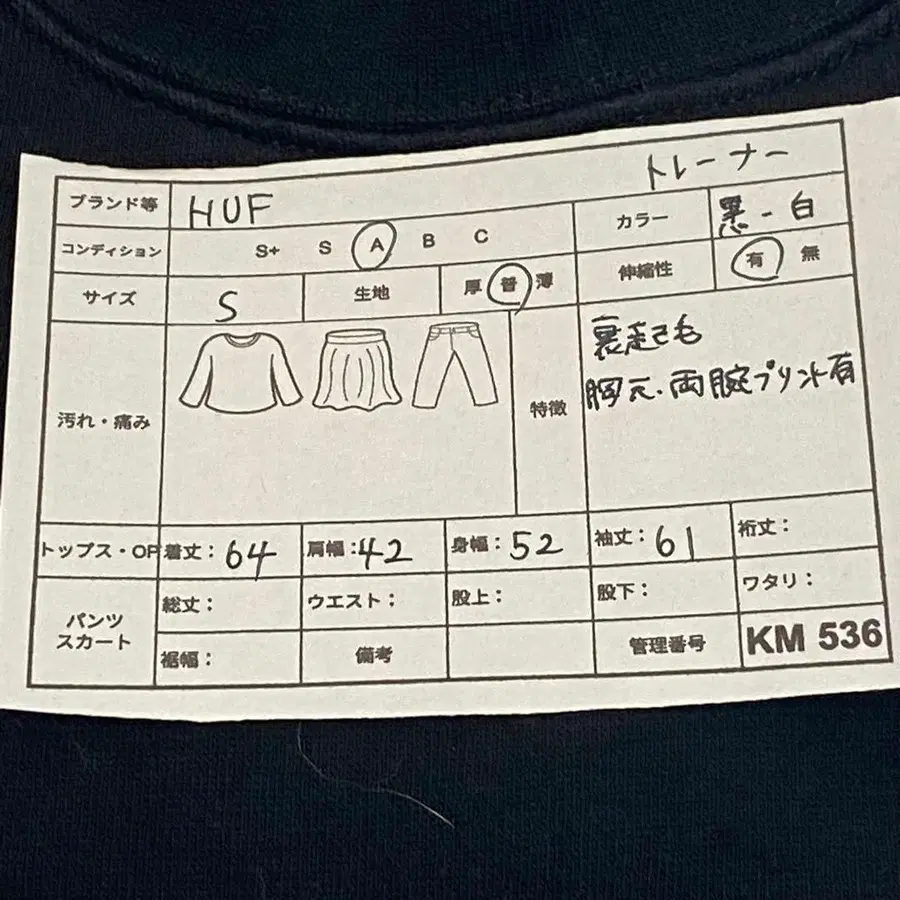 トレーナー
ブランド等 HUF
カラー 黒-白
コンディション S+ S A B C
伸縮性 有 無
サイズ S 生地 厚 普 薄
汚れ・痛み
特徴
裏起毛
胸元・両腕プリント有
トップス・OP 着丈:64 肩幅:42 身幅:52 袖丈:61 裄丈:
パンツ
スカート
総丈: ウエスト: 股上: 股下: ワタリ:
裾幅: 備考 管理番号 KM 536